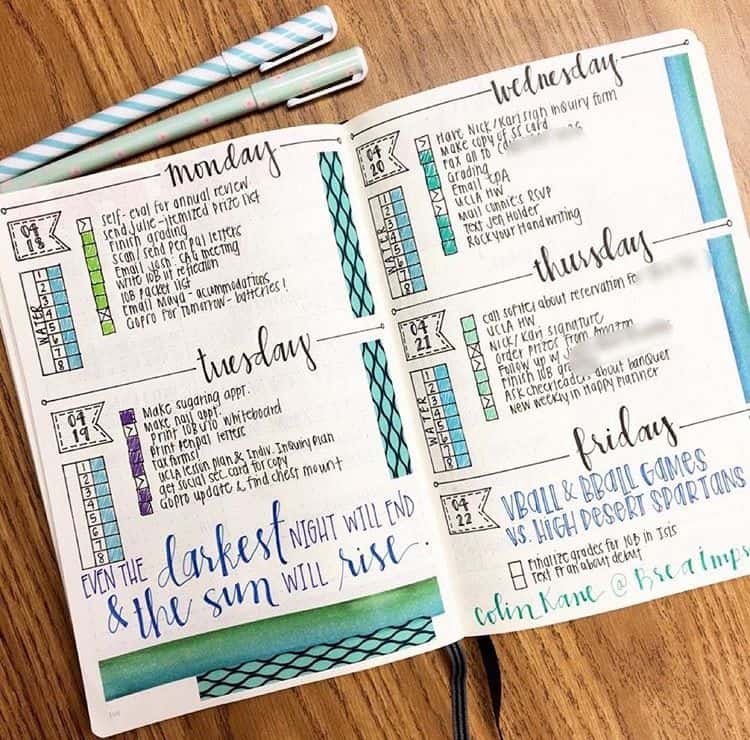 Monday
04
18
self-eval for annual review
send Julie-itemized prize list
Finish grading
scan/send pen pal letters
Email Josh: CAG meeting
Write 10B in reflection
10B packet list
Email Maya-accommodations
GoPro for tomorrow-batteries!
WATER
1
2
3
4
5
6
7
8
Tuesday
04
19
Make sugaring appt.
Make nail appt.
Print 10B u10 whiteboard
print penpal letters
tax forms!
UCLA lesson plan & Indiv. Inquiry Plan
get social sec. card for copy
GoPro update & find chest mount
WATER
1
2
3
4
5
6
7
8
EVEN THE darkest NIGHT WILL END
& the sun WILL rise.
Wednesday
04
20
Have Nick/Kari sign Inquiry form
Make copy of SS card
Fax all to
Grading
Email
UCLA HW
Mail Connie's RSVP
Text Jen Holder
Rock Your Handwriting
WATER
1
2
3
4
5
6
7
8
Thursday
04
21
call sofitel about reservation
UCLA HW
Nick/Kari signature
Order prizes from Amazon
Follow up w/
Finish 10B
Ask cheerleaders about banquet
New weekly in Happy Planner
WATER
1
2
3
4
5
6
7
8
friday
04
22
VBALL & BBALL GAMES
VS. HIGH DESERT SPARTANS
Finalize grades for 10B in Isis
Text Fran about debut
Colin Kane @ Brea Improv